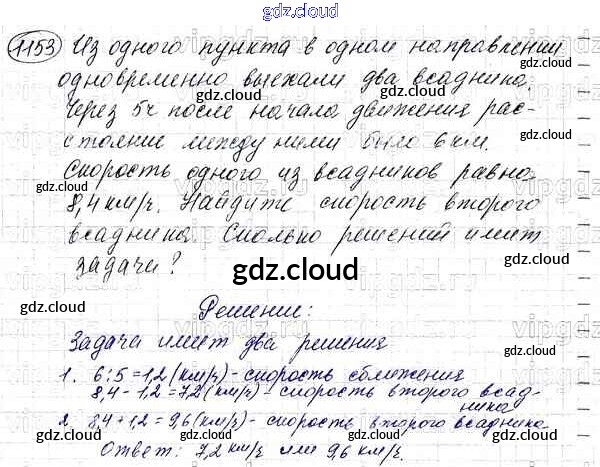 gdz.cloud
1153 Из одного пункта в одном направлении
одновременно выехали два всадника.
Через 5ч после начала движения рас-
стояние между ними было 6 км.
Скорость одного из всадников равна
8,4 км/ч. Найдите скорость второго
всадника. Сколько решений имеет
задача?
gdz.cloud
Решение:
Задача имеет два решения
1. 6:5=1,2 (км/ч) - скорость сближения
8,4-1,2=7,2 (км/ч) - скорость второго всад-
ника
2. 8,4+1,2=9,6 (км/ч) - скорость второго всадника
Ответ: 7,2 км/ч или 9,6 км/ч.